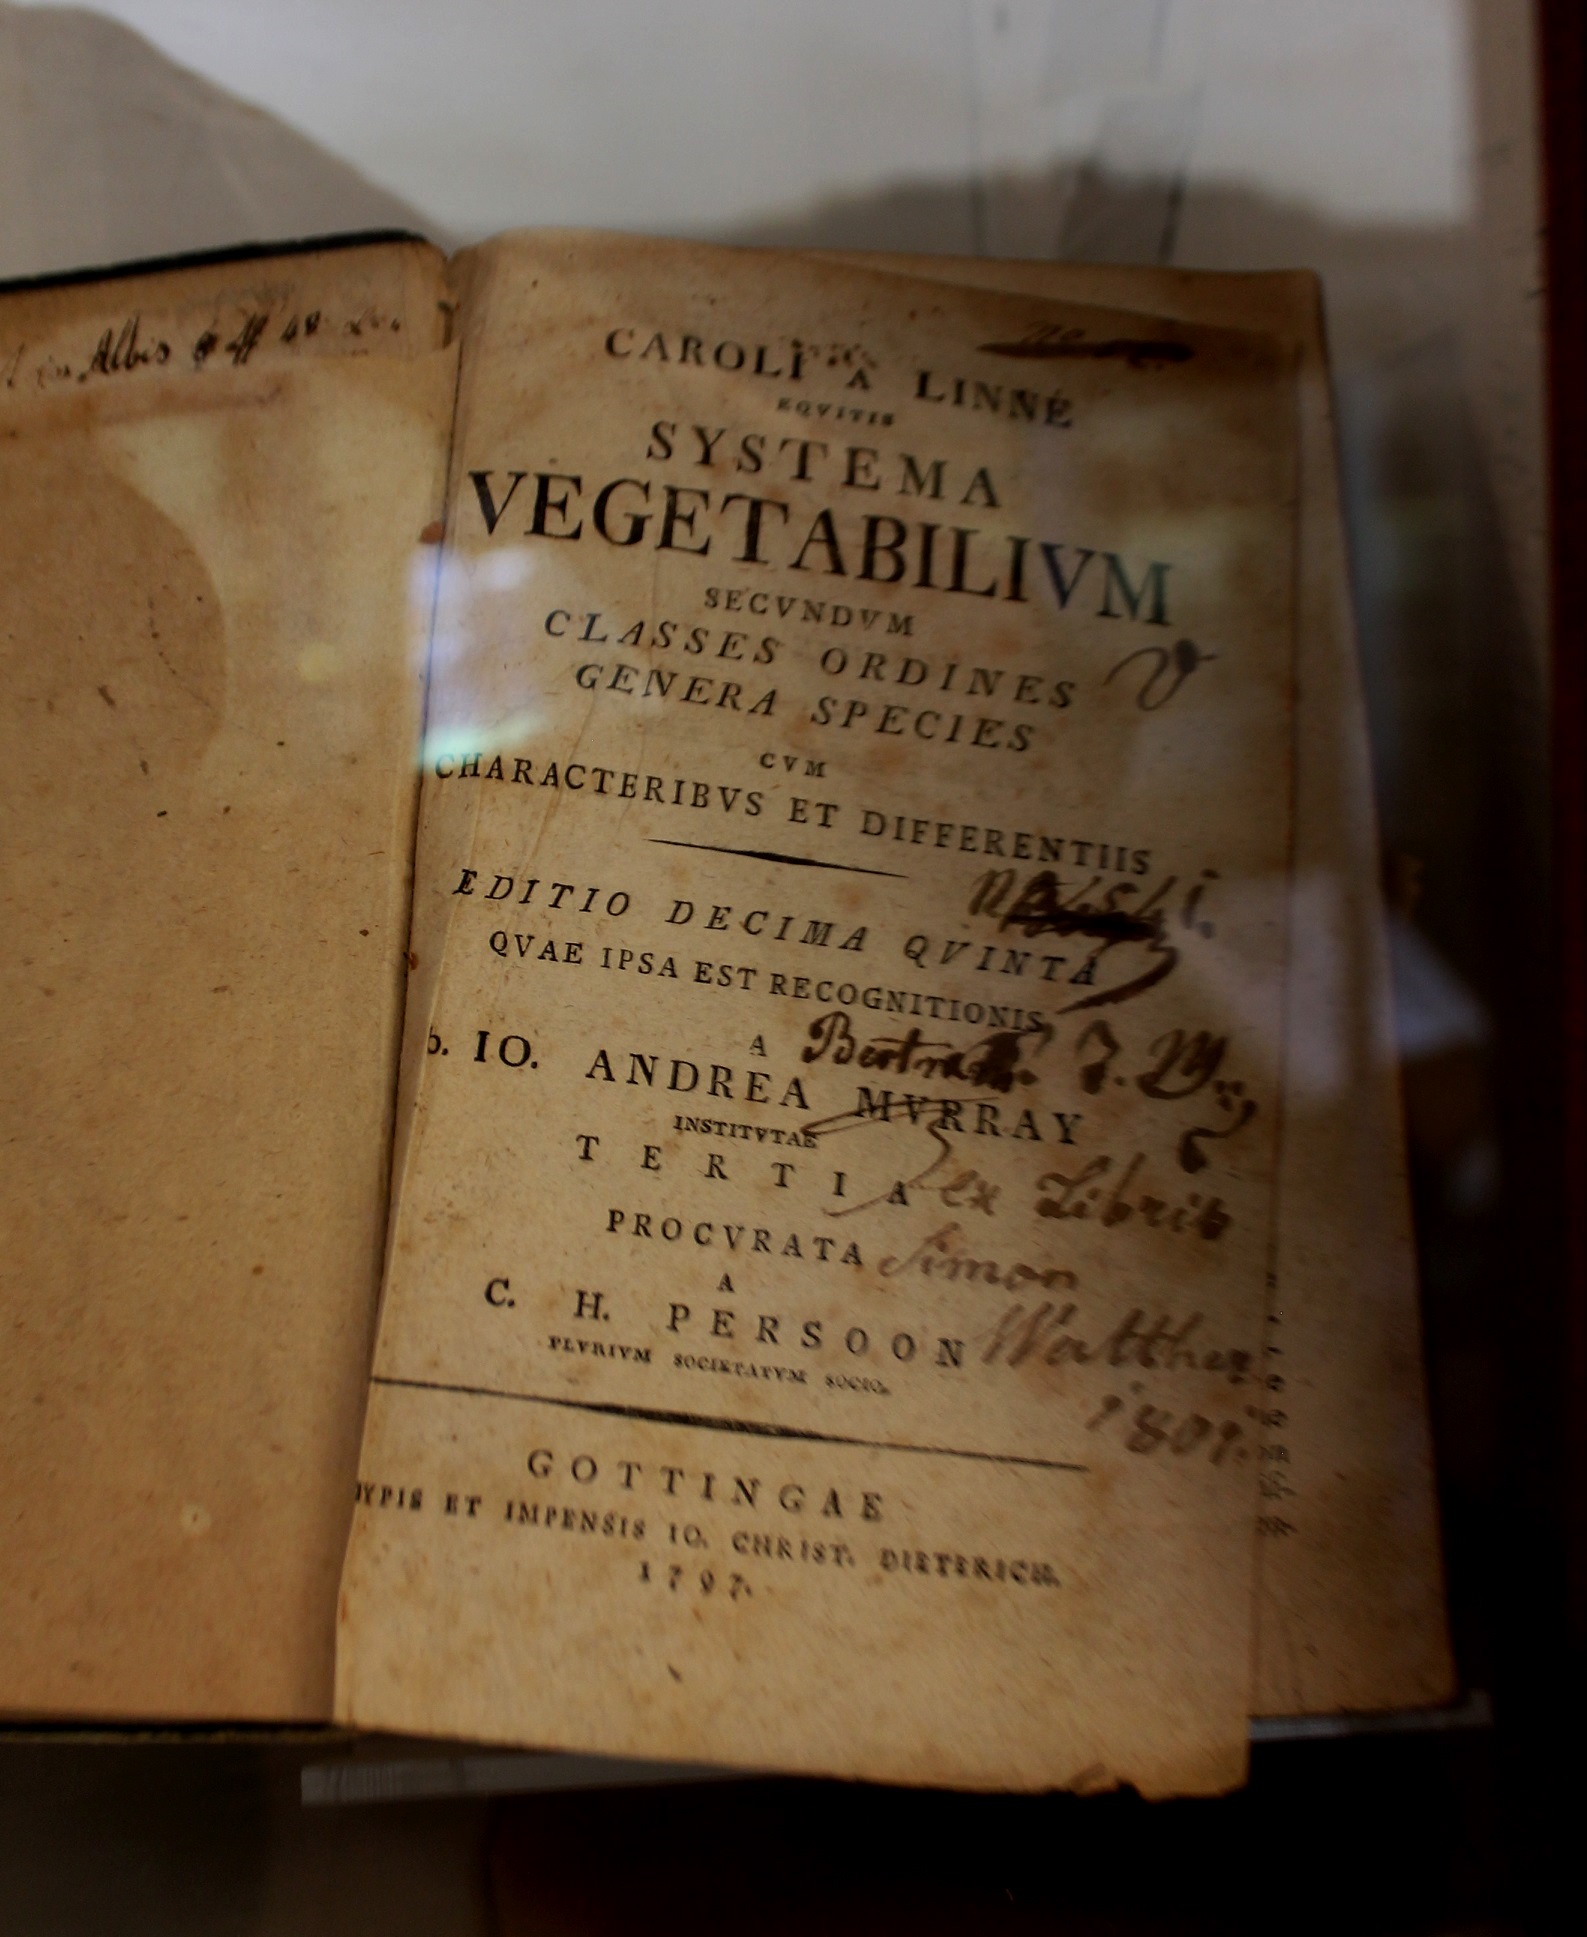 in Albis
CAROLI A LINNÉ
EQVITIS
SYSTEMA
VEGETABILIVM
SECVNDVM
CLASSES ORDINES
GENERA SPECIES
CVM
CHARACTERIBVS ET DIFFERENTIIS
EDITIO DECIMA QVINTA
QVAE IPSA EST RECOGNITIONIS
A
b. IO. ANDREA MVRRAY
INSTITVTAE
TERTIA
ex Libris
PROCVRATA
Simon
A
C. H. PERSOON
Walther
PLVRIVM SOCIETATVM SOCIO.
1801.
GOTTINGAE
TYPIS ET IMPENSIS IO. CHRIST. DIETERICH.
1797.